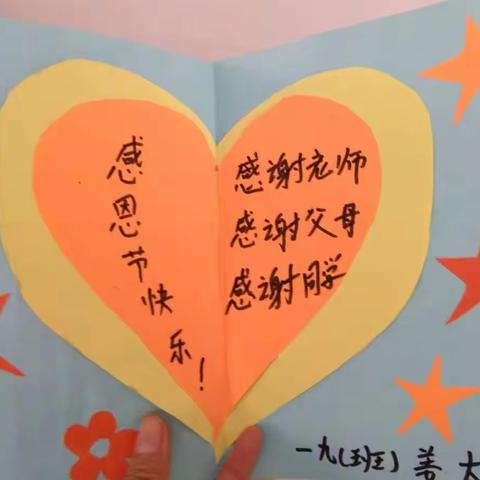 感恩节快乐!
感谢老师
感谢父母
感谢同学
一九(班)